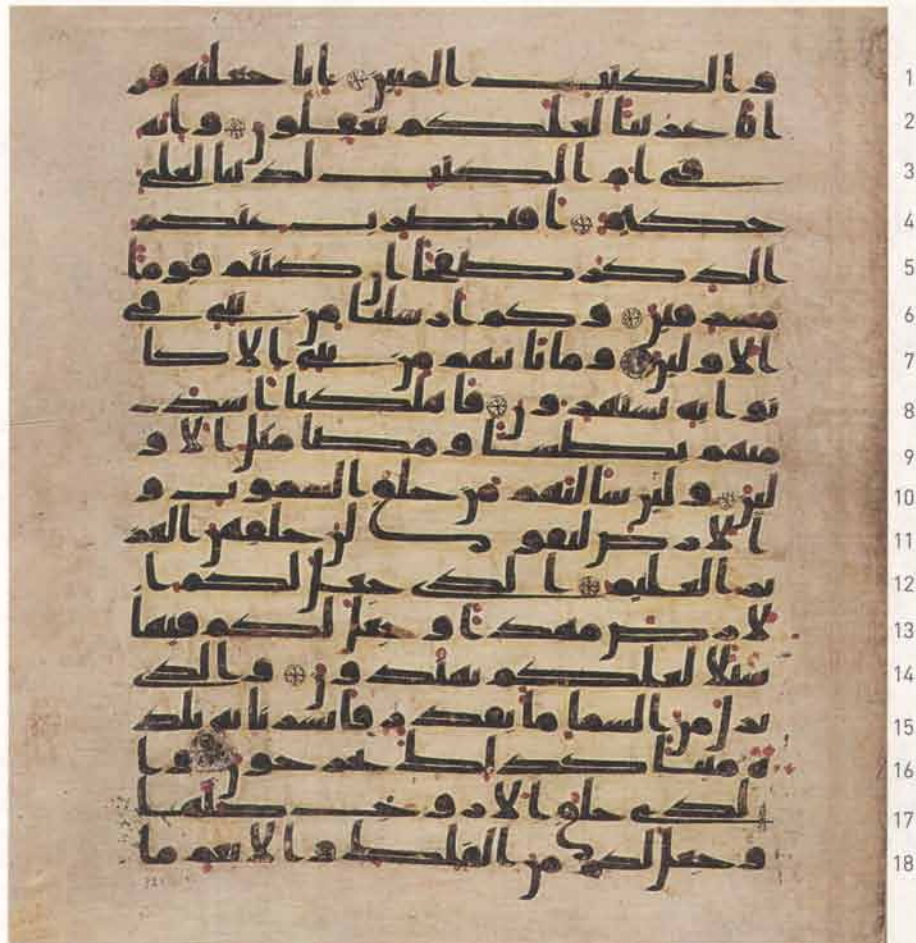 والكتب المبين انا جعلنه قر 1
انا عربيا لعلكم تعقلون وانه 2
في ام الكتب لدينا لعلي 3
حكيم افنضرب عنكم 4
الذكر صفحا ان كنتم قوما 5
مسرفين وكم ارسلنا من نبي في 6
الاولين وما ياتيهم من نبي الا كا 7
نوا به يستهزون فاهلكنا اشد 8
منهم بطشا ومضى مثل الاو 9
لين ولين سالتهم من خلق السموت و 10
الارض ليقولن خلقهن العز 11
يز العليم الذي جعل لكم ا 12
لارض مهدا وجعل لكم فيها 13
سبلا لعلكم تهتدون والذي 14
نزل من السما ما بقدر فانشرنا به بلد 15
ة ميتا كذلك تخرجون وا 16
لذي خلق الازوج كلها 17
وجعل لكم من الفلك والانعم ما 18